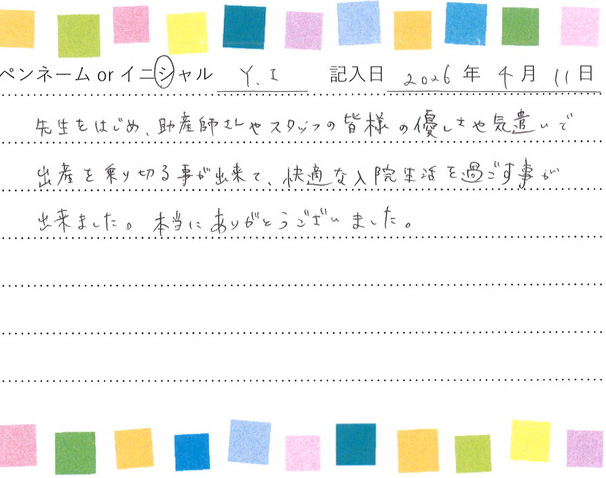 ペンネーム or イニシャル Y.I 記入日 2026年 4月 11日
先生をはじめ、助産師さんやスタッフの皆様の優しさや気遣いで
出産を乗り切る事が出来て、快適な入院生活を過ごす事が
出来ました。本当にありがとうございました。